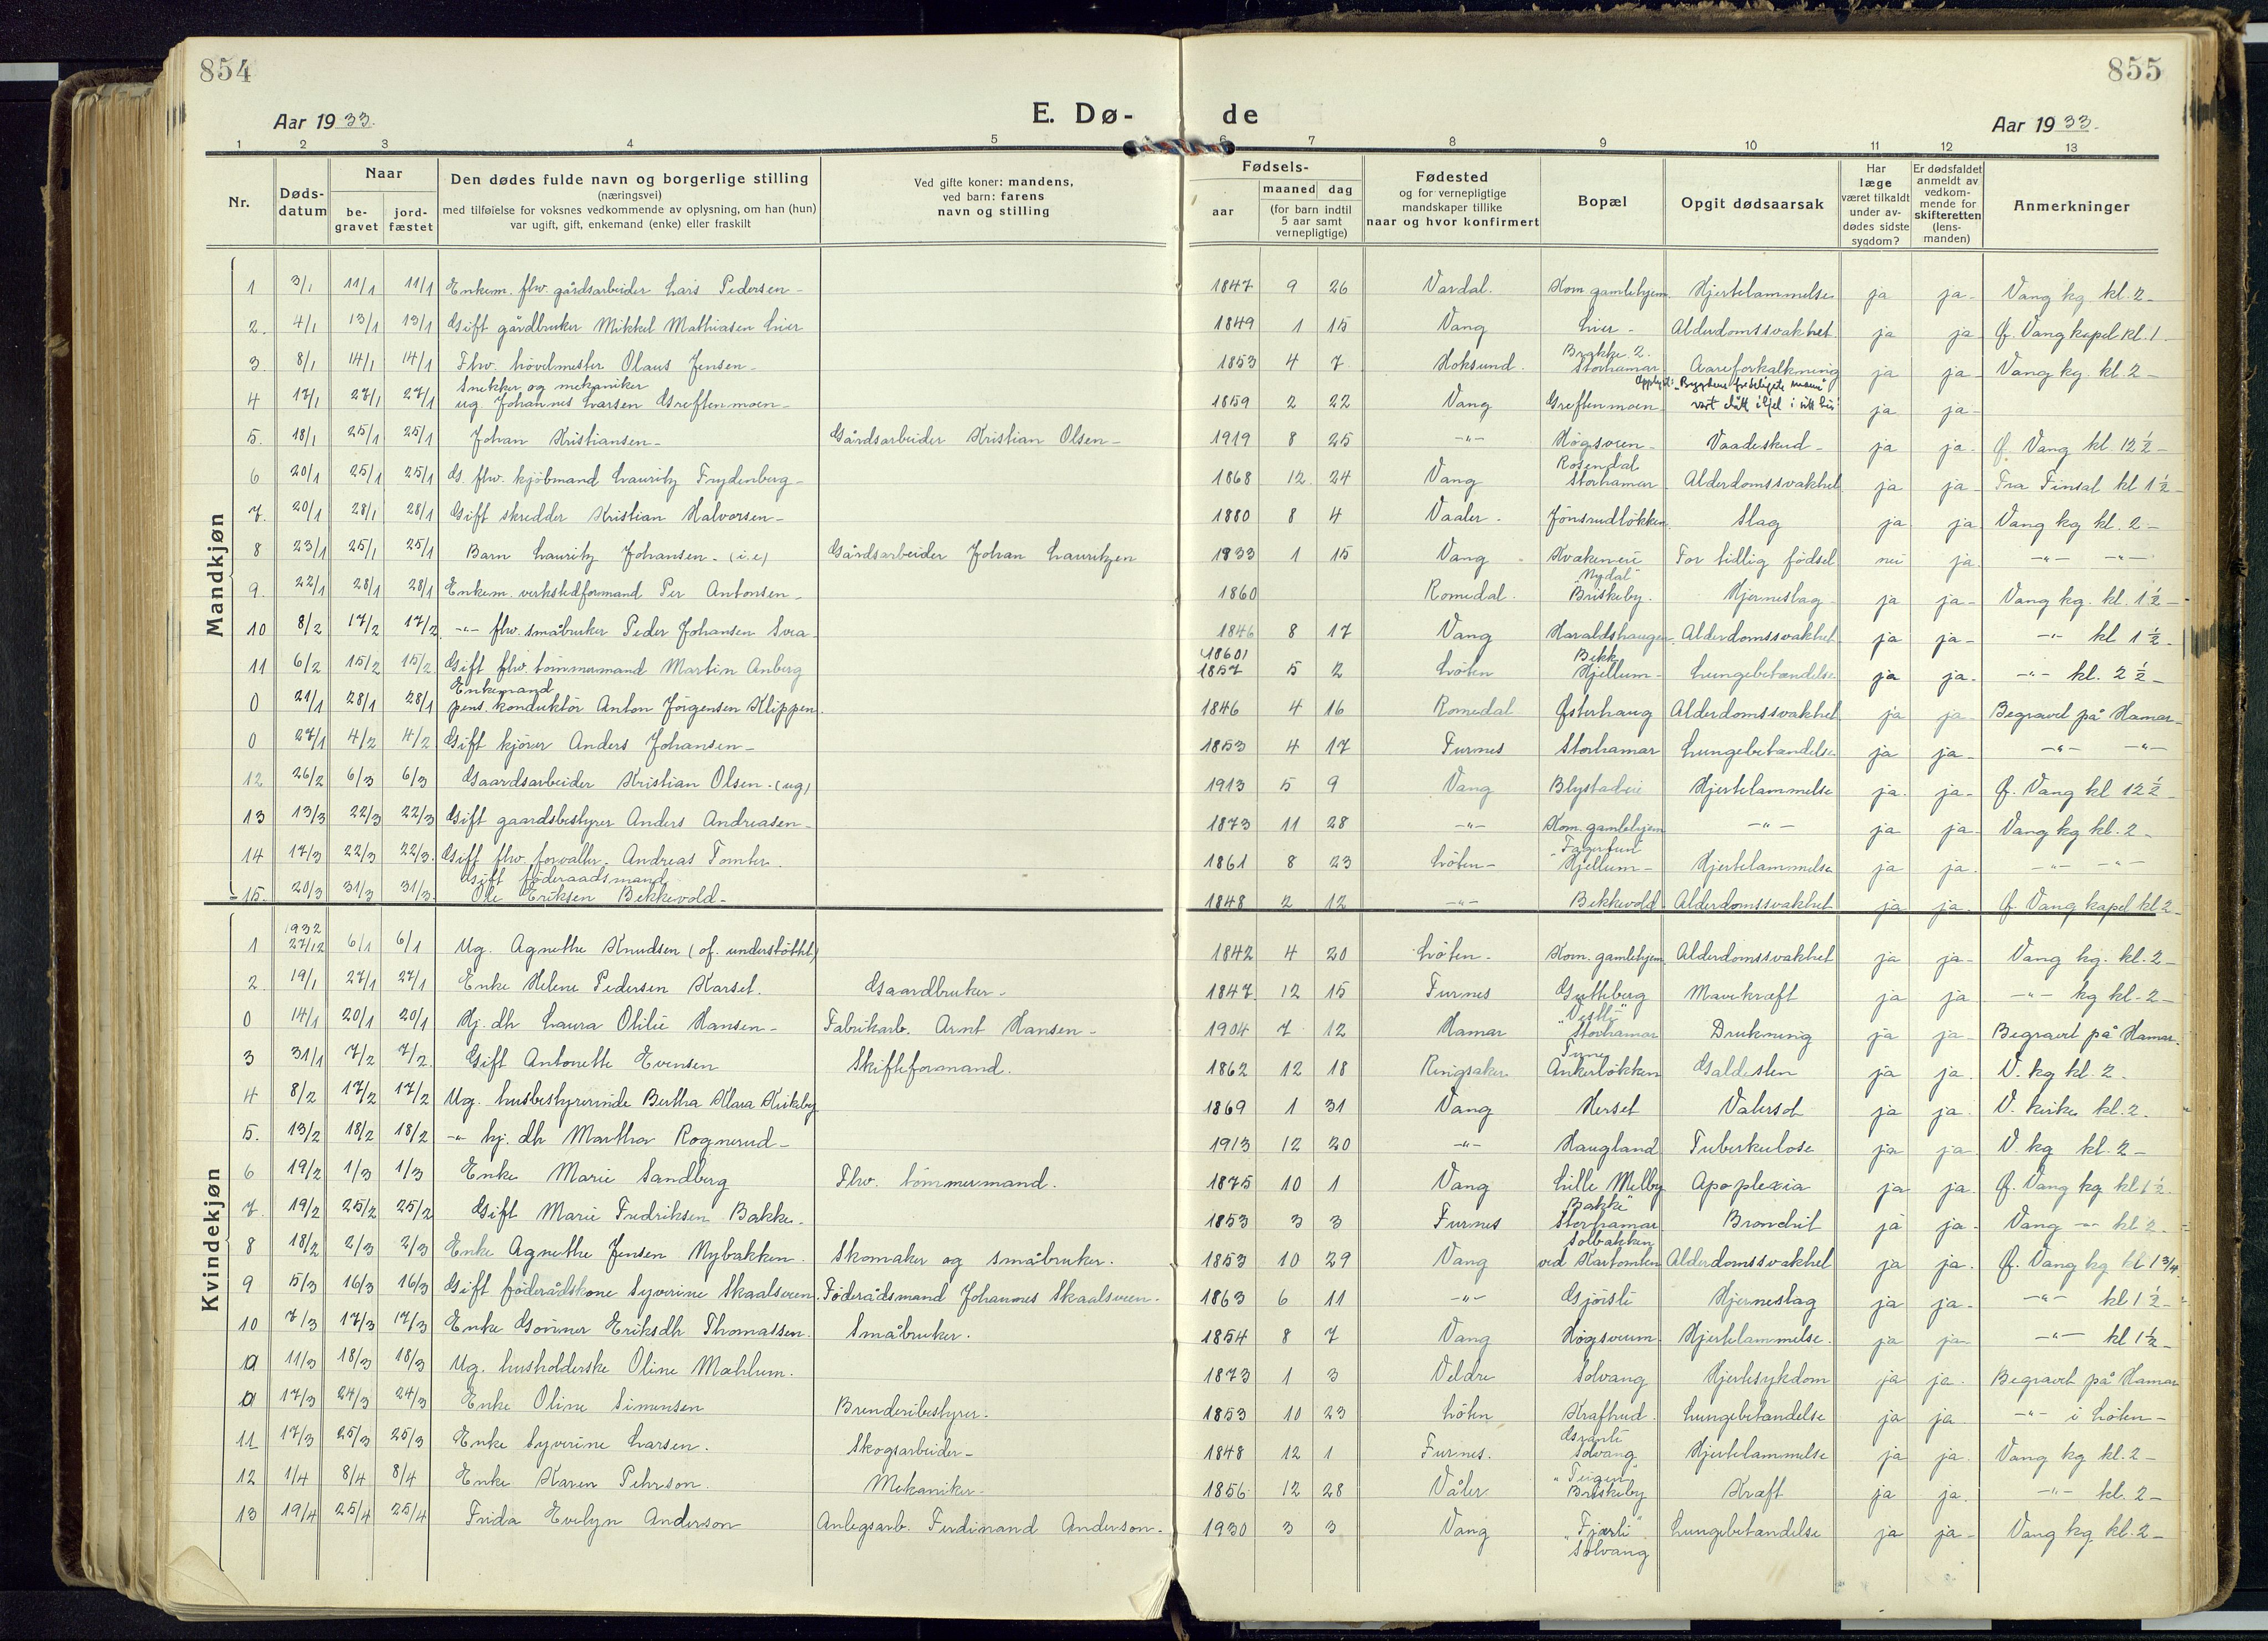 854
855
Aar 1933.
E. Dø-
de
Aar 1933.
1 2 3 4 5 6 7 8 9 10 11 12 13
Nr.
Døds-
datum
Naar
be-
gravet
jord-
fæstet
Den dødes fulde navn og borgerlige stilling
(næringsvei)
med tilføielse for voksnes vedkommende av oplysning, om han (hun)
var ugift, gift, enkemand (enke) eller fraskilt
Ved gifte koner: mandens,
ved barn: farens
navn og stilling
Fødsels-
aar
maaned dag
(for barn indtil
5 aar samt
vernepligtige)
Fødested
og for vernepligtige
mandskaper tillike
naar og hvor konfirmert
Bopæl
Opgit dødsaarsak
Har
læge
været tilkaldt
under av-
dødes sidste
sygdom?
Er dødsfaldet
anmeldt av
vedkom-
mende for
skifteretten
(lens-
manden)
Anmerkninger
Mandkjøn
1 3/1 11/1 11/1 Enkem. fhv. gårdsarbeider Lars Pedersen - 1847 9 26 Vardal. Kom. gamlehjem. Hjertelammelse ja ja- Vang kg. kl. 2-
2. 4/1 13/1 13/1 Gift gårdbruker Mikkel Mathiasen Lier 1849 1 15 Vang Lier - Alderdomssvakhet ja ja Ø. Vang kapel kl. 1-
3. 8/1 14/1 14/1 Fhv. hövelmester Olaus Jensen - 1853 4 7 Hoksund. Brakke 2. Storhamar Aareforkalkning ja ja Vang kg. kl. 2-
4 17/1 27/1 27/1 Snekker og mekaniker ug. Johannes Larsen Greftenmoen - 1859 2 22 Vang Greftenmoen ja ja-
5. 18/1 25/1 25/1 Johan Kristiansen - Gårdsarbeider Kristian Olsen - 1919 8 25 -"- Høgsveen - Vaadeskud - ja ja- Ø. Vang kl. 12 ½ -
6 20/1 25/1 25/1 G. fhv. kjöbmand Lauritz Frydenberg - 1868 12 24 Vang Rosendal Storhamar Alderdomssvakhet ja ja- Fra Finsal kl 1 ½ -
7. 20/1 28/1 28/1 Gift skredder Kristian Halvorsen - 1880 8 4 Vaaler. Jönsrudløkken Slag ja ja Vang kg kl. 2 -
8 23/1 25/1 25/1 Barn Lauritz Johansen - (i.e) Gårdsarbeider Johan Lauritzen 1933 1 15 Vang Kvakeneie For tidlig fødsel nei ja -"- -"-
9. 22/1 28/1 28/1 Enkem. verkstedformand Per Antonsen - 1860 Romedal. "Nydal" Briskeby. Hjerneslag ja ja- Vang kg. kl. 1 ½ -
10 8/2 17/2 17/2 -"- fhv. småbruker Peder Johansen Svea 1846 8 17 Vang Haraldshaugen Alderdomssvakhet ja ja- -"- kl 1 ½ -
11 6/2 15/2 15/2 Gift fhv. tömmermand Martin Anberg (1860) 1857 5 2 Löten Bekk Hjellum - Lungebetændelse ja ja- -"- kl. 2 ½ -
0 21/1 28/1 28/1 Enkemand pens. konduktör Anton Jörgensen Klippen. 1846 4 16 Romedal Østerhaug Alderdomssvakhet ja ja- Begravet på Hamar-
0 27/1 4/2 4/2 Gift kjörer Anders Johansen - 1853 4 17 Furnes Storhamar Lungebetændelse ja ja- -"- -"-
12 26/2 6/3 6/3 Gaardsarbeider Kristian Olsen. (ug) 1913 5 9 Vang Blystadeie Hjertelammelse ja. ja- Ø. Vang kl 12 ½ -
13 13/3 22/3 22/3 Gift gaardsbestyrer Anders Andreasen - 1873 11 28 -"- Kom. gamlehjem -"- ja ja- Vang kg kl. 2 -
14 17/3 22/3 22/3. Gift fhv. forvalter. Andreas Tomter. 1861 8 23 Löten - "Fagertun" Hjellum - Hjertelammelse ja ja. -"- -"-
15. 20/3 31/3 31/3. Gift föderaadsmand Ole Eriksen Bekkevold - 1848 2 12 -"- Bekkevold Alderdomssvakhet ja ja. Ø. Vang kapel kl 2 -
Kvindekjøn
1 1932 27/12 6/1 6/1 Ug. Agnethe Knudsen (of. understöttet) 1842 4 20 Löten - Kom. gamlehjem. Alderdomssvakhet ja ja- Vang kg. kl. 2 -
2. 19/1 27/1 27/1 Enke Helene Pedersen Karset. Gaardbruker - 1847 12 15 Furnes Gutteberg Mavekræft ja ja -"- kg kl. 2 -
0 14/1 20/1 20/1 Hj. dh Laura Otilie Hansen - Fabrikarb. Arnt Hansen - 1904 7 12 Hamar Storhamar Drukning ja ja- Begravet på Hamar.
3 31/1 7/2 7/2. Gift Antonette Evensen Skifteformand. 1862 12 18 Ringsaker Ankerløkken Galdesten ja ja. V. kg kl. 2 -
4 8/2 17/2 17/2 Ug. husbestyrerinde Bertha Klara Krikeby 1869 1 31 Vang Herset Vatersot ja ja V. kirke kl. 2.
5. 13/2 18/2 18/2 -"- hj. dh Martha Rognerud - 1913 12 20 -"- Haugland Tuberkulose ja ja V. kg kl. 2 -
6 19/2 1/3 1/3 Enke Marie Sandberg Fhv. tömmermand. 1875 10 1 Vang Lille Melby Apoplexia ja ja. Ø. Vang kg kl 1 ½.
7. 19/2 25/2 25/2 Gift Marie Fredriksen Bakke. 1853 3 3 Furnes "Bakke" Storhamar ja ja- Vang -"- kl 2.
8 18/2 2/3 2/3 Enke Agnethe Jensen Nybakken. Skomaker og småbruker. 1853 10 29 Vang Solbakken ved Kartomten Alderdomssvakhet ja ja. Ø. Vang kg kl 1 3/4.
9 5/3 16/3 16/3 Gift föderådskone Syverine Skaalsveen. Föderådsmand Johannes Skaalsveen. 1863 6 11 -"- Gjörsli Hjerneslag ja ja- -"- kl 1 ½ -
10 7/3 17/3 17/3 Enke Gouner Eriksdh Thomassen. Småbruker. 1854 8 7 Vang Högsveum Hjertelammelse. ja ja- -"- kl 1 ½ -
0 11/3 18/3 18/3 Ug. husholderske Oline Mæhlum. 1873 1 3 Veldre Solvang Hjertesykdom ja ja. Begravet på Hamar
0 17/3 24/3 24/3 Enke Oline Simensen Brenderibestyrer. 1853 10 23 Löten Kraftrud. Lungebetændelse ja ja -"- i Löten -
11 17/3 25/3 25/3 Enke Syverine Larsen. Skogsarbeider - 1848 12 1 Furnes. Solvang Hjertelammelse ja ja. Vang kg kl. 2 -
12 1/4 8/4 8/4 Enke Karen Pehrson. Mekaniker - 1856 12 28 Våler "Teigen" Briskeby Kræft ja ja. -"- kl. 2 -
13 19/4 25/4 25/4 Frida Evelyn Anderson Anlegsarb. Ferdinand Anderson. 1930 3 3 Vang "Fjærli" Solvang Lungebetændelse ja ja- Vang kg. kl. 2 -